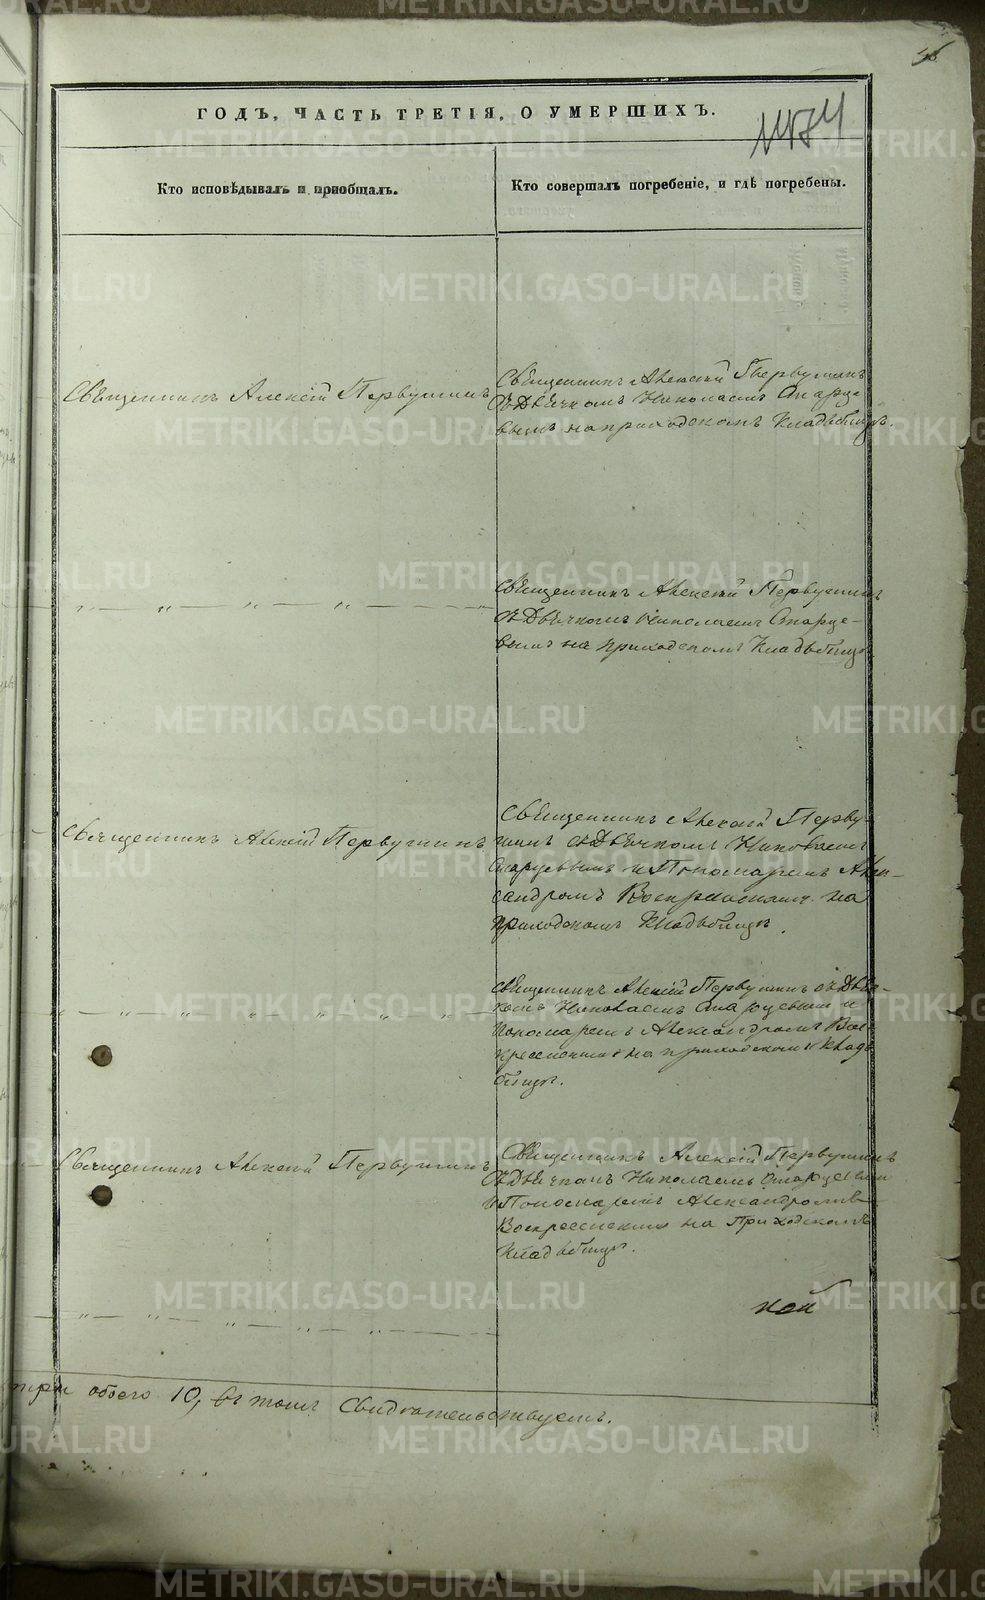 ГОДЪ, ЧАСТЬ ТРЕТІЯ, О УМЕРШИХЪ.
Кто исповѣдывалъ и приобщалъ.
Кто совершалъ погребеніе, и гдѣ погребены.
Священникъ Алексій Первушинъ
Священникъ Алексій Первушинъ
съ Дьячкомъ Николаемъ Старце-
вымъ на приходскомъ Кладбищѣ.
— „ — „ — „ — „ —
Священникъ Алексій Первушинъ
съ Дьячкомъ Николаемъ Старце-
вымъ на приходскомъ Кладбищѣ
Священникъ Алексій Первушинъ
Священникъ Алексій Перву-
шинъ съ Дьячкомъ Николаемъ
Старцевымъ и Пономаремъ Алек-
сандромъ Воскресенскимъ на
приходскомъ Кладбищѣ.
— „ — „ — „ — „ —
Священникъ Алексій Первушинъ съ Дьяч-
комъ Николаемъ Старцевымъ и
Пономаремъ Александромъ Вос-
кресенскимъ на приходскомъ Клад-
бищѣ.
Священникъ Алексій Первушинъ
Священникъ Алексій Первушинъ
съ Дьячкомъ Николаемъ Старцевымъ
и Пономаремъ Александромъ
Воскресенскимъ на Приходскомъ
Кладбищѣ.
— „ — „ — „ — „ —
кой
три обоего 10, въ томъ свидѣтельствуемъ.
METRIKI.GASO-URAL.RU